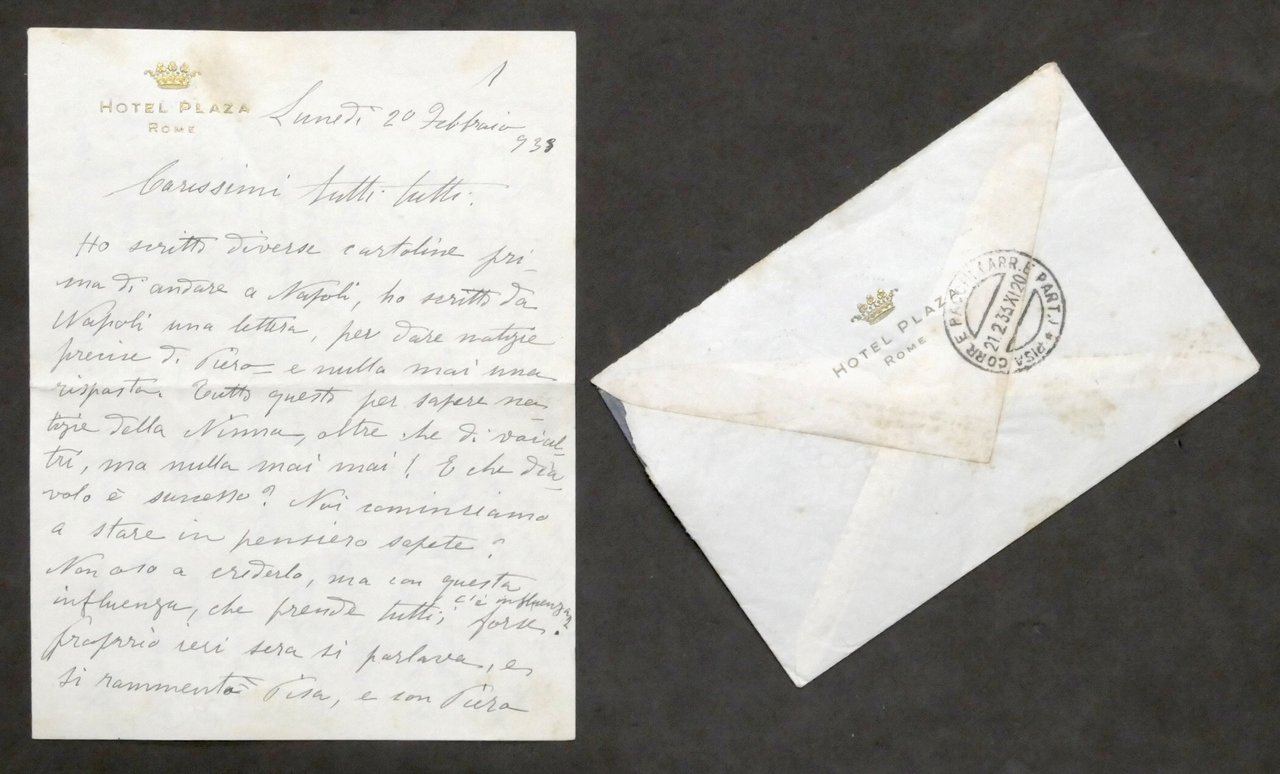 HOTEL PLAZA
ROME
1
Lunedì 20 Febbraio
933
Carissimi tutti tutti.
Ho scritto diverse cartoline pri-
ma di andare a Napoli, ho scritto da
Napoli una lettera, per dare notizie
precise di Piero e nulla mai una
risposta. Tutto questo per sapere no-
tizie della Ninna, oltre che di voial-
tri, ma nulla mai mai! E che dia-
volo è successo? Noi cominciamo
a stare in pensiero sapete?
Non oso a crederlo, ma con questa
c'è influenza?
influenza, che prende tutti, forse.
Proprio ieri sera si parlava, e
si rammentò Pisa, e con Piero
HOTEL PLAZA
ROME
PISA CORR. E PACCHI (ARR. E PART.)
21.2.33.XI 20